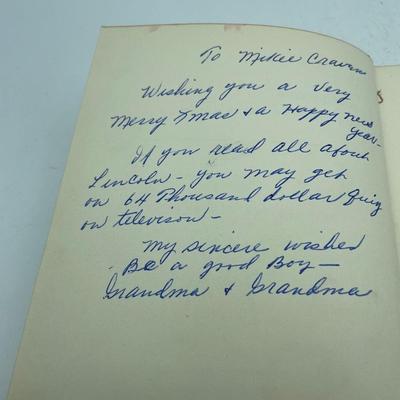 To Mikie Craven
Wishing you a Very
Merry Xmas + a Happy new
year-
If you read all about
Lincoln - you may get
on 64 Thousand dollar Quiz
on televison -
My sincere wished
- Be a good Boy -
Grandma + Grandma